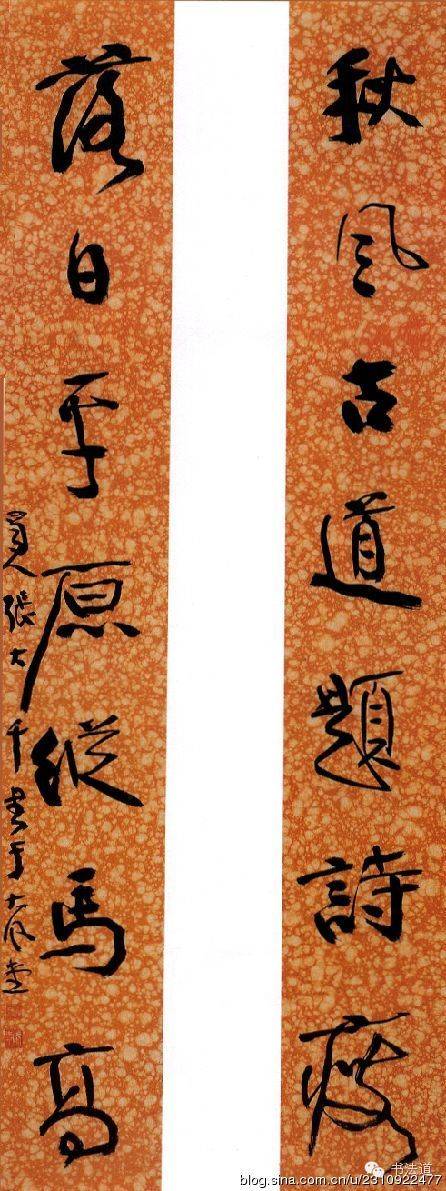 秋風古道題詩瘦
落日平原縱馬高
蜀人張大千書于大風堂
书法道
blog.sina.com.cn/u/2310922477